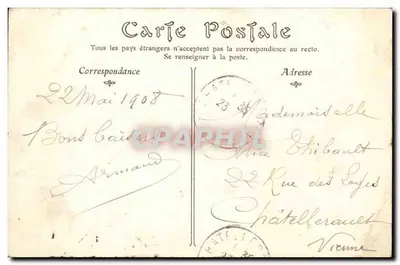 Carte Postale
Tous les pays étrangers n'acceptent pas la correspondance au recto.
Se renseigner à la poste.
Correspondance
Adresse
22 Mai 1908
Bons baisers
Armand
Mademoiselle
Alice Thibault
22 Rue des Loges
Châtellerault
Vienne
CPAPHIL